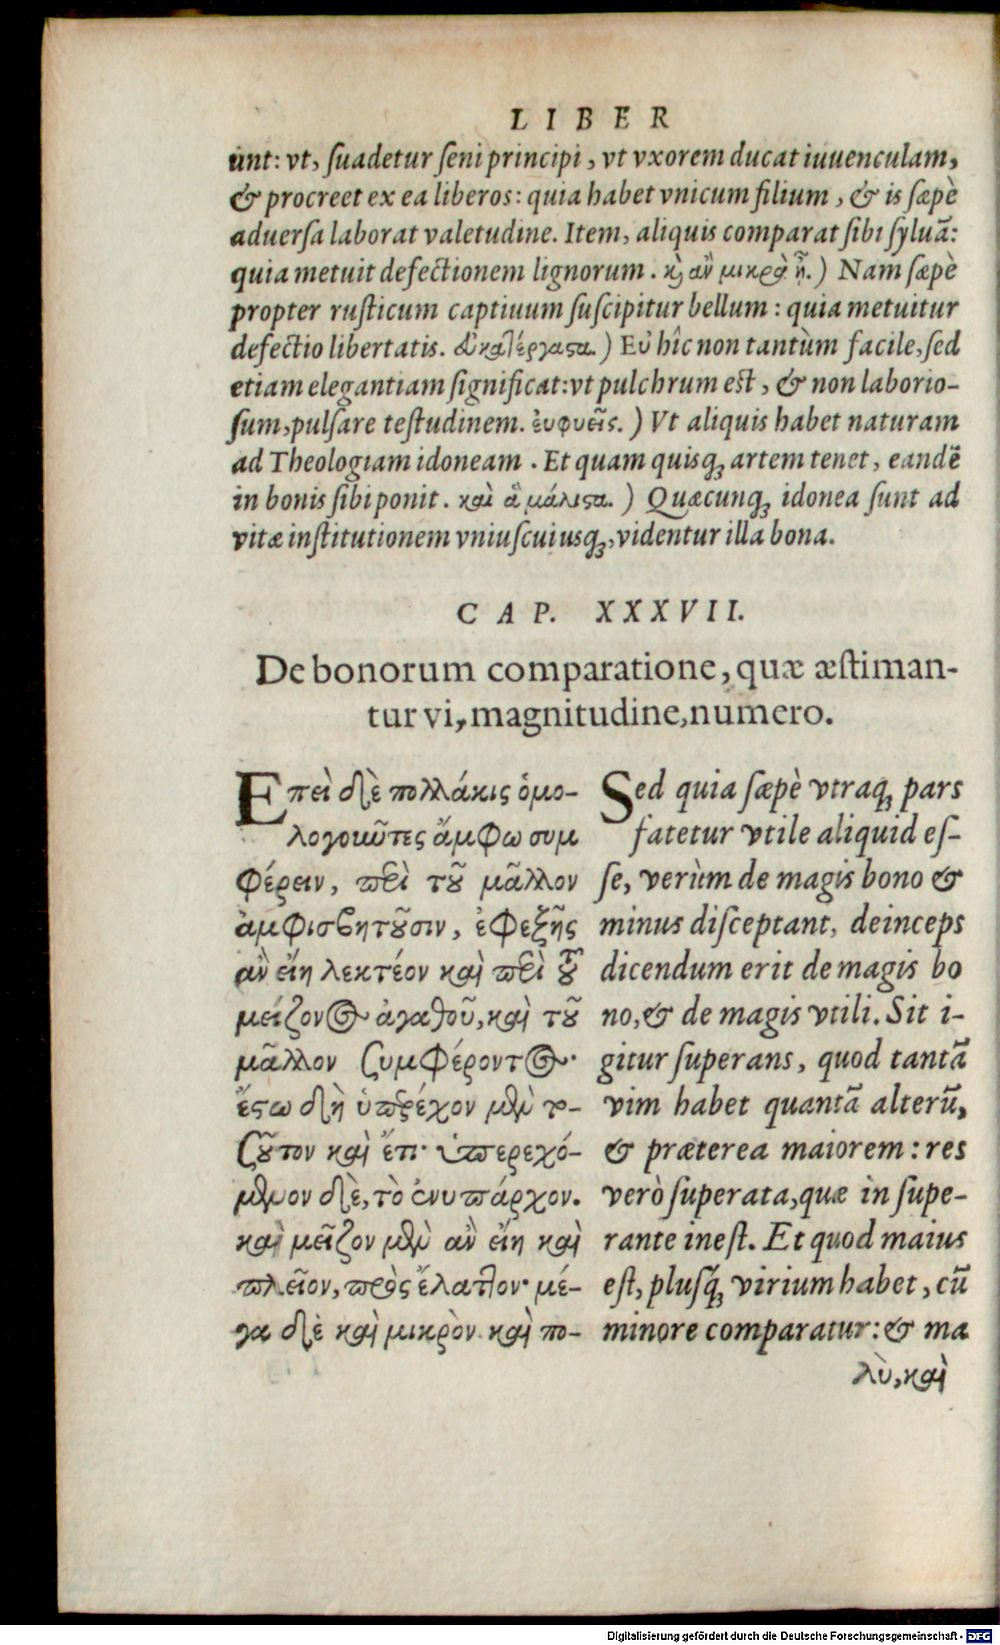 LIBER
unt: vt, suadetur seni principi, vt vxorem ducat iuuenculam,
& procreet ex ea liberos: quia habet vnicum filium, & is sæpè
aduersa laborat valetudine. Item, aliquis comparat sibi syluã:
quia metuit defectionem lignorum. κ̀ ἂν μικρὰ ᾖ.) Nam sæpè
propter rusticum captiuum suscipitur bellum: quia metuitur
defectio libertatis. εὐκατέργαστα.) Εὐ hîc non tantùm facile, sed
etiam elegantiam significat: vt pulchrum est, & non laborio-
sum, pulsare testudinem. ἐυφυεῖς.) Vt aliquis habet naturam
ad Theologiam idoneam. Et quam quisq; artem tenet, eandẽ
in bonis sibi ponit. καὶ ἃ μάλιστα.) Quæcunq; idonea sunt ad
vitæ institutionem vniuscuiusq;, videntur illa bona.
CAP. XXXVII.
De bonorum comparatione, quæ æstiman-
tur vi, magnitudine, numero.
Επεὶ δὲ πολλάκις ὁμο-
λογοῦντες ἄμφω συμ
φέρειν, περὶ τοῦ μᾶλλον
ἀμφισβητοῦσιν, ἐφεξῆς
ἂν εἴη λεκτέον καὶ περὶ τοῦ
μείζονος ἀγαθοῦ, καὶ τοῦ
μᾶλλον συμφέροντος·
ἔστω δὴ ὑπερέχον μὲν το-
σοῦτον καὶ ἔτι· ὑπερεχό-
μενον δὲ, τὸ ἐνυπάρχον.
καὶ μεῖζον μὲν ἂν εἴη καὶ
πλεῖον, πρὸς ἔλαττον· μέ-
γα δὲ καὶ μικρὸν καὶ πο-
Sed quia sæpè vtraq; pars
fatetur vtile aliquid es-
se, verùm de magis bono &
minus disceptant, deinceps
dicendum erit de magis bo
no, & de magis vtili. Sit i-
gitur superans, quod tantã
vim habet quantã alterũ,
& præterea maiorem: res
verò superata, quæ in supe-
rante inest. Et quod maius
est, plusq́; virium habet, cũ
minore comparatur: & ma
λὺ, καὶ
Digitalisierung gefördert durch die Deutsche Forschungsgemeinschaft - DFG